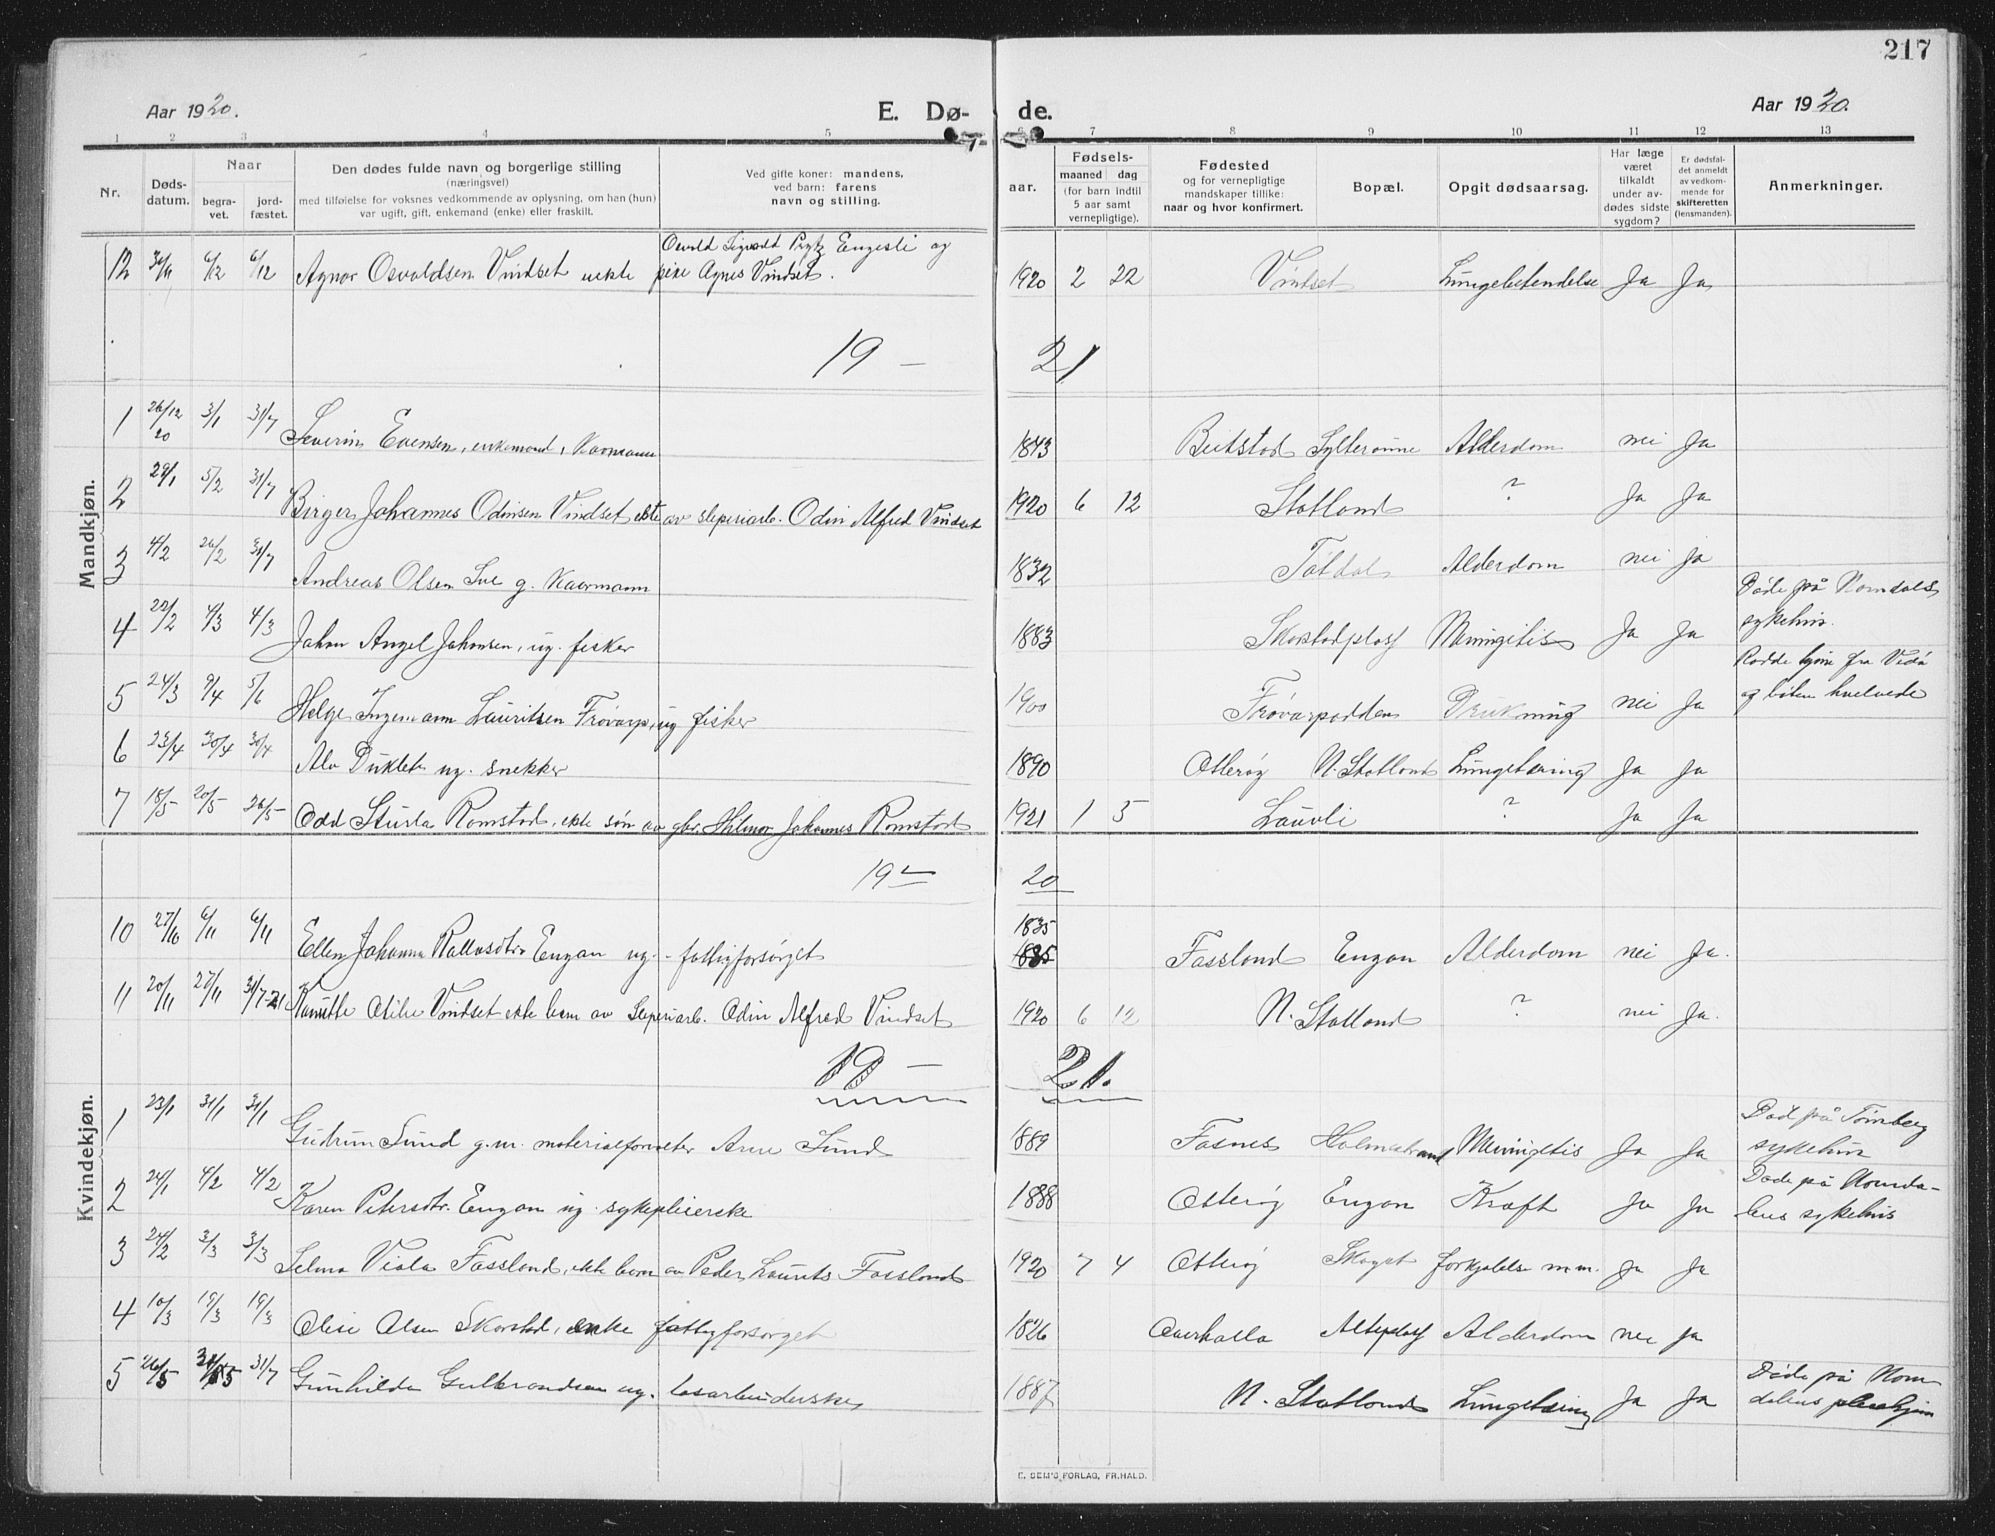 217
Aar 1920. E. Dø- de. Aar 1920.
1 2 3 4 5 6 7 8 9 10 11 12 13
Nr. Døds-datum. Naar begra-vet. jord-fæstet. Den dødes fulde navn og borgerlige stilling (næringsvei) med tilføielse for voksnes vedkommende av oplysning, om han (hun) var ugift, gift, enkemand (enke) eller fraskilt. Ved gifte koner: mandens, ved barn: farens navn og stilling. aar. Fødsels- maaned dag (for barn indtil 5 aar samt vernepligtige). Fødested og for vernepligtige mandskaper tillike: naar og hvor konfirmert. Bopæl. Opgit dødsaarsag. Har læge været tilkaldt under av-dødes sidste sygdom? Er dødsfal-det anmeldt av vedkom-mende for skifteretten (lensmanden). Anmerkninger.
Osvald Sigvald Prytz Engesli og
12 30/11 6/12 6/12 Agnar Osvaldsen Vindset uekte pike Agnes Vindset. 1920 2 22 Vindset Lungebetendelse Ja Ja
19 — 21
Mandkjøn.
1 26/12 20 3/1 31/7 Severin Evensen, enkemand, Kaarmann 1843 Beitstad Sylterømne Alderdom nei Ja
2 29/1 5/2 31/7 Birger Johannes Odinsen Vindset ekte av sliperiarb. Odin Alfred Vindset 1920 6 12 Statland ? Ja Ja
3 4/2 26/2 31/7 Andreas Olsen Sve g. Kaarmann 1832 Tøtdal Alderdom nei ja
4 22/2 4/3 4/3 Johan Angel Johansen, ug. fisker 1883 Skorstadplass Meningitis Ja Ja Døde på Namdals sykehus.
5 24/3 9/4 5/6 Helge Ingemann Lauritsen Frøvarp, ug fisker 1900 Frøvarpodden Drukning nei Ja Rodde hjem fra Vedø og båten hvelvede
6 23/4 30/4 30/4 Alv Duklet ug. snekker 1890 Otterøy N. Statland Lungetæring Ja Ja
7 18/5 20/5 26/5 Odd Sturla Ramstad, ekte søn av gbr. Hilmar Johannes Ramstad 1921 1 5 Lauvli ? Ja Ja
19 — 20
Kvindekjøn.
1835
10 27/10 6/11 6/11 Ellen Johanna Rallasdtr. Engan ug. - fattigforsørget 1835 Fossland Engan Alderdom nei Ja.
11 20/11 27/11 31/7-21 Otilie Vindset ekte barn av Sliperiarb. Odin Alfred Vindset 1920 6 12 N. Statland ? nei Ja.
19 — 21.
1 23/1 31/1 31/1 Gudrun Sund g.m. materialforvalter Arne Sund 1889 Fosnes Holmestrand Meningitis Ja Ja Død på Tønsberg sykehus
2 24/1 4/2 4/2 Karen Petersdtr. Engan ug. sykepleierske 1888 Otterøy Engan Kræft Ja Ja Døde på Namda-lens sykehus
3 24/2 3/3 3/3 Selma Viola Fossland, ekte barn av Peder Laurits Fossland 1920 7 4 Otterøy Skaget forkjølelse m.m. Ja Ja
4 10/3 19/3 19/3 Olise Olsen Skorstad, enke fattigforsørget 1826 Overhalla Alteplass Alderdom nei ja
5 26/5 31/5 31/7 Gunhilda Gulbrandsen ug. løsarbeiderske 1887 N. Statland Lungetæring Ja Ja Døde på Nam dalens pleiehjem
E. SEM'S FORLAG, FR.HALD.